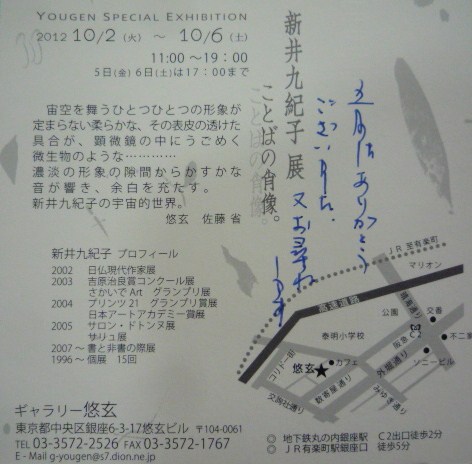 YOUGEN SPECIAL EXHIBITION
2012 10/2 (火) ~ 10/6 (土)
11:00〜19:00
5日(金) 6日(土)は17:00まで
新井九紀子 展
ことばの肖像。
宙空を舞うひとつひとつの形象が
定まらない柔らかな、その表皮の透けた
具合が、顕微鏡の中にうごめく
微生物のような…………
濃淡の形象の隙間からかすかな
音が響き、余白を充たす。
新井九紀子の宇宙的世界。
悠玄 佐藤 省
ありがとう
ございました。
又お尋ね
新井九紀子 プロフィール
2002 日仏現代作家展
2003 吉原治良賞コンクール展
さかいでArt グランプリ展
2004 プリンツ21 グランプリ賞展
日本アートアカデミー賞展
2005 サロン・ドトンヌ展
サリュ展
2007〜 書と非書の際展
1996〜 個展 15回
ギャラリー悠玄
東京都中央区銀座6-3-17悠玄ビル 〒104-0061
TEL 03-3572-2526 FAX 03-3572-1767
E - Mail g-yougen@s7.dion.ne.jp
JR 至有楽町
マリオン
高速道路
公園
交番
C2
泰明小学校
不二家
ソニービル
コリドー街
悠玄
カフェ
交詢社通り
数寄屋通り
みゆき通り
外堀通り
◎ 地下鉄丸の内銀座駅 C2出口徒歩2分
◎ JR有楽町駅銀座口 徒歩5分